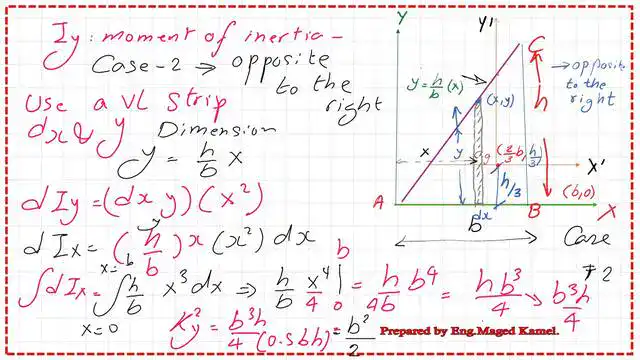 Iy: moment of inertia -
Case-2 ⇒ opposite
to the
right
Use a VL strip
dx & y Dimension
y = h/b x
dIy = (dx y)(x²)
dIx = (h/b) x (x²) dx
y
∫dIx = ∫ h/b x³ dx ⇒ h/b x⁴/4 | = h/4b b⁴ = hb³/4 → b³h/4
x=b
x=0
b
0
Ky² = b³h/4(0.5bh) = b²/2
Y
Y'
C
y = h/b (x)
(x,y)
→ opposite
to the
right
h
x
y
g
(2/3 b, h/3)
X'
h/3
(b,0)
A
dx
B
X
b
Case
#2
Prepared by Eng.Maged Kamel.